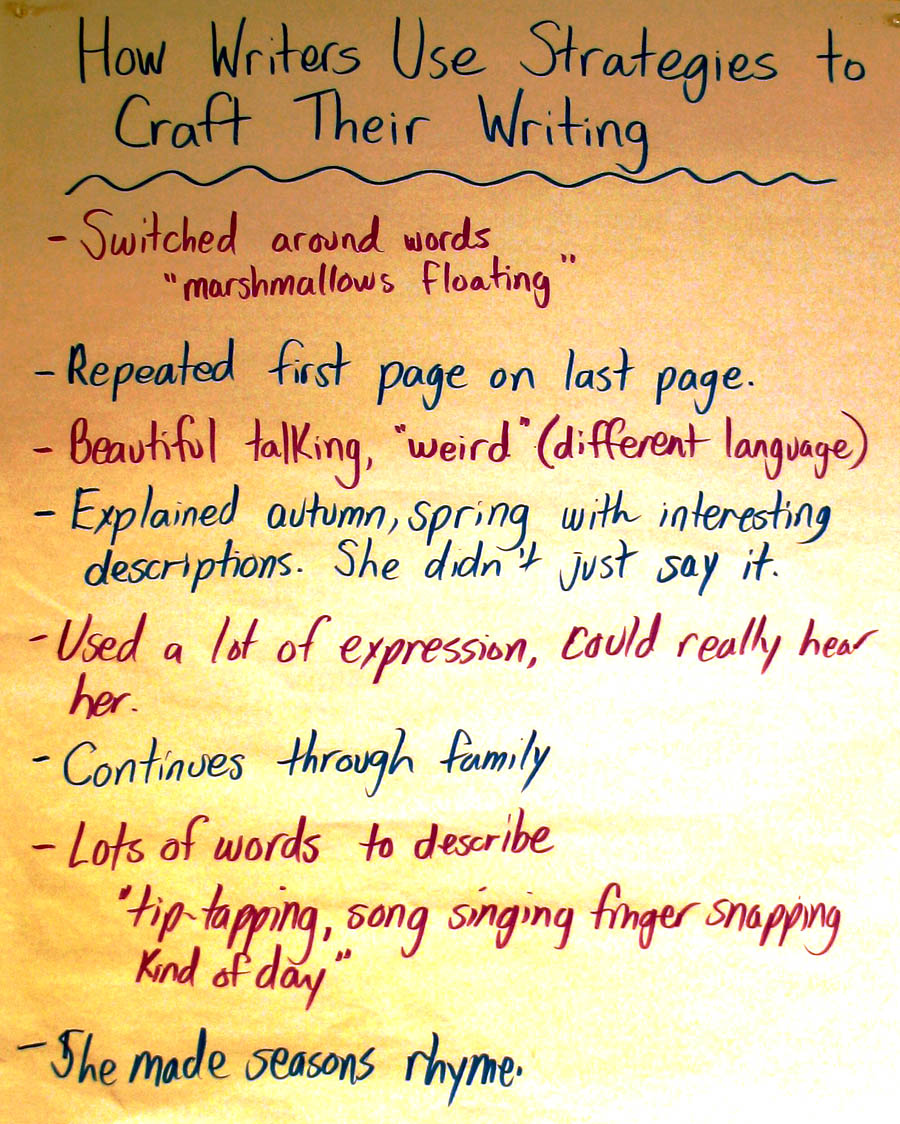 How Writers Use Strategies to
Craft Their Writing
- Switched around words
"marshmallows floating"
- Repeated first page on last page.
- Beautiful talking, "weird" (different language)
- Explained autumn, spring with interesting
descriptions. She didn't just say it.
- Used a lot of expression, could really hear
her.
- Continues through family
- Lots of words to describe
"tip-tapping, song singing finger snapping
kind of day"
- She made seasons rhyme.